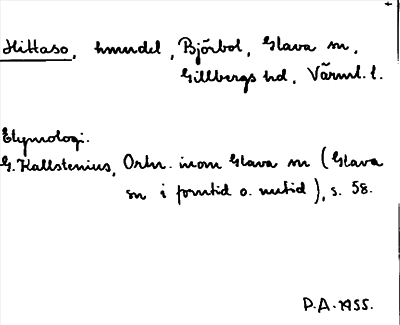 Hittaso, hmndel, Björbol, Glava sn,
Gillbergs hd, Värml. l.
Etymologi.
G. Kallstenius, Ortn. inom Glava sn (Glava
sn i forntid o. nutid), s. 58.
P.A. 1955.